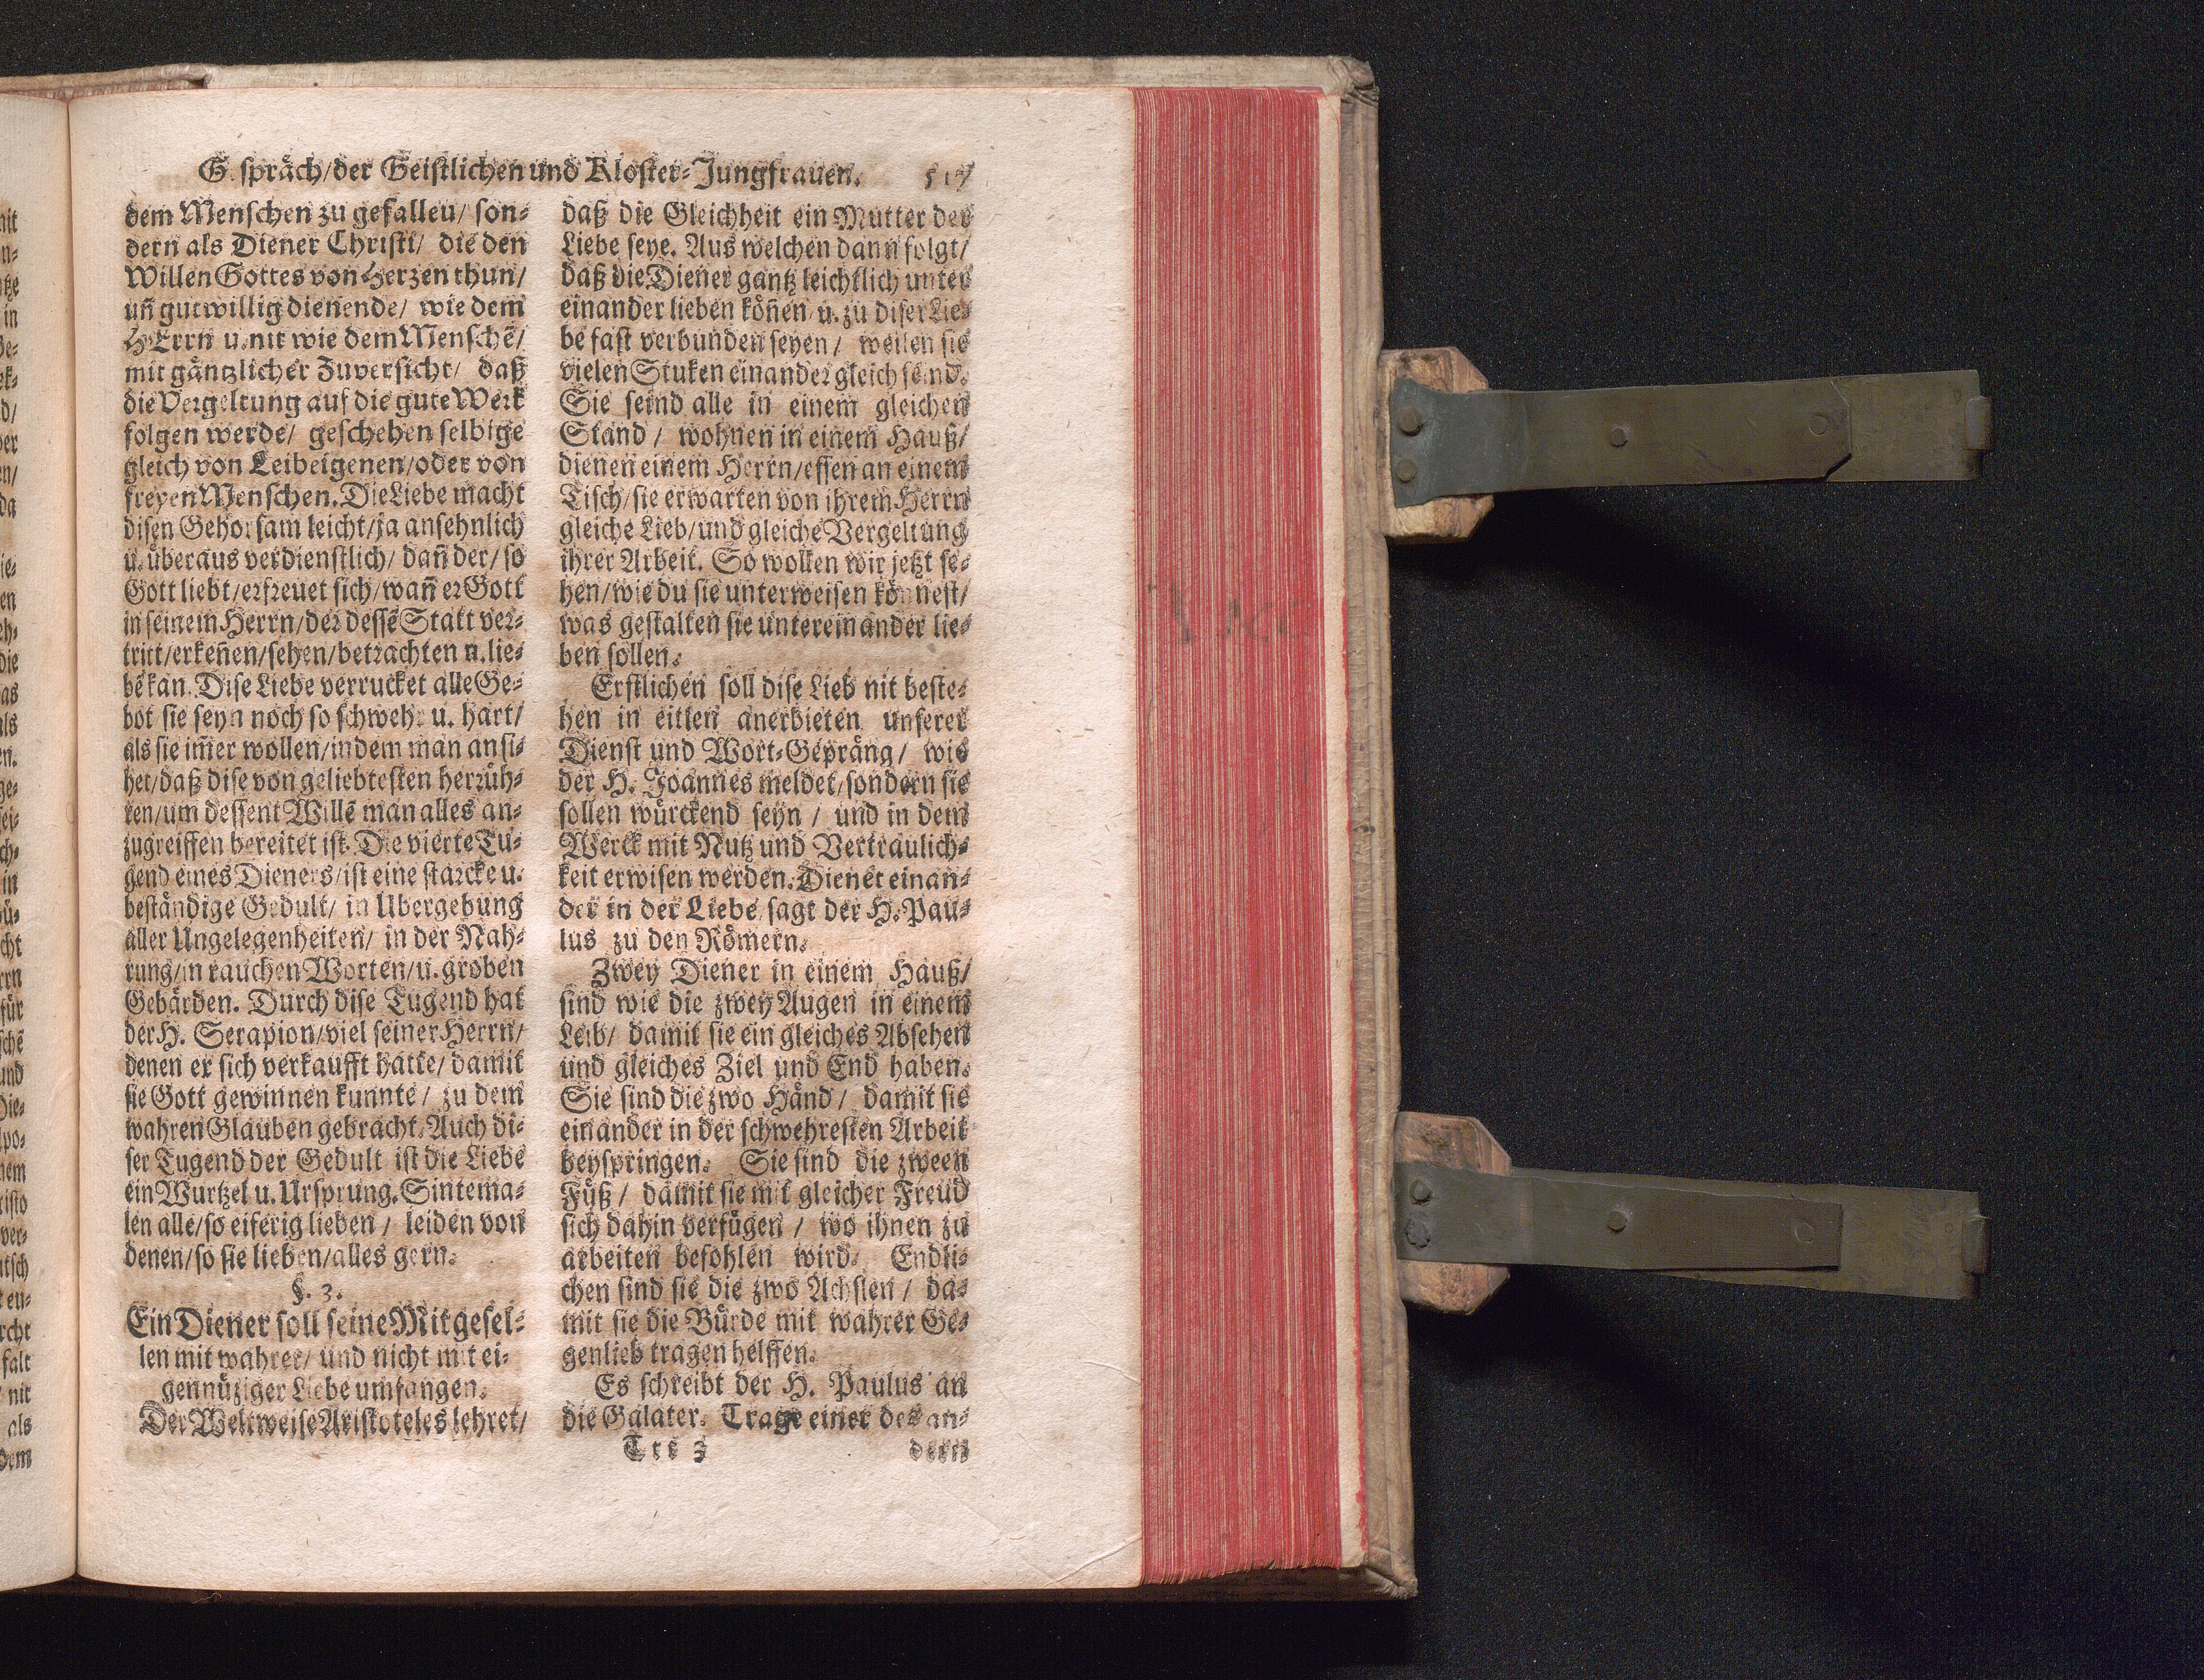 G. spräch/der Geistlichen und Kloster-Jungfrauen. 517
dem Menschen zu gefalleu/ son-
dern als Diener Christi/ die den
Willen Gottes von Herzen thun/
uñ gutwillig dienende/ wie dem
HErrn u. nit wie dem Mensche/
mit gäntzlicher Zuversicht/ daß
die Vergeltung auf die gute Werk
folgen werde/ geschehen selbige
gleich von Leibeigenen/oder von
freyen Menschen. Die Liebe macht
disen Gehorsam leicht/ja ansehnlich
u. überaus verdienstlich/ dañ der/ so
Gott liebt/erfreuet sich/wañ er Gott
in seinem Herrn/der dessē Statt ver-
tritt/erkeñen/sehen/betrachten u. lie-
bē kan. Dise Liebe verrucket alle Ge-
bot sie seyn noch so schwehr u. hart/
als sie im̃er wollen/indem man ansi-
het/daß dise von geliebtesten herrüh-
ren/um dessent Willē man alles an-
zugreiffen bereitet ist. Die vierte Tu-
gend eines Dieners/ist eine starcke u.
beständige Gedult/ in Ubergebung
aller Ungelegenheiten/ in der Nah-
rung/in rauchen Worten/u. groben
Gebärden. Durch dise Tugend hat
der H. Serapion/viel seiner Herrn/
denen er sich verkaufft hatte/ damit
sie Gott gewinnen kunnte/ zu dem
wahren Glauben gebracht. Auch di-
ser Tugend der Gedult ist die Liebe
ein Wurtzel u. Ursprung. Sintema-
len alle/so eiferig lieben/ leiden von
denen/so sie lieben/alles gern.
§. 3.
Ein Diener soll seine Mitgesel-
len mit wahrer/ und nicht mit ei-
gennüziger Liebe umfangen.
Der Weltweise Aristoteles lehret/
daß die Gleichheit ein Mutter der
Liebe seye. Aus welchen dann folgt/
daß die Diener gantz leichtlich unter
einander lieben köñen/ u. zu diser Lie-
be fast verbunden seyen/ weilen sie
vielen Stuken einander gleich seind.
Sie seind alle in einem gleichen
Stand/ wohnen in einem Hauß/
dienen einem Herrn/essen an einem
Tisch/sie erwarten von ihrem Herrn
gleiche Lieb/und gleiche Vergeltung
ihrer Arbeit. So wollen wir jetzt se-
hen/wie du sie unterweisen könnest/
was gestalten sie untereinander lie-
ben sollen.
Erstlichen soll dise Lieb nit beste-
hen in eitlen anerbieten unserer
Dienst und Wort-Gepräng/ wie
der H. Joannes meldet/sondern sie
sollen würckend seyn/ und in dem
Werck mit Nutz und Vertraulich-
keit erwisen werden. Dienet einan-
der in der Liebe/sagt der H. Pau-
lus zu den Römern.
Zwey Diener in einem Hauß/
sind wie die zwey Augen in einem
Leib/ damit sie ein gleiches Absehen
und gleiches Ziel und End haben.
Sie sind die zwo Händ/ damit sie
einander in der schwehresten Arbeit
beyspringen. Sie sind die zween
Füß/ damit sie mit gleicher Freud
sich dahin verfügen/ wo ihnen zu
arbeiten befohlen wird. Endli-
chen sind sie die zwo Achslen/ da-
mit sie die Bürde mit wahrer Ge-
genlieb tragen helffen.
Es schreibt der H. Paulus an
die Galater. Trage einer des an-
Ttt 3 dern